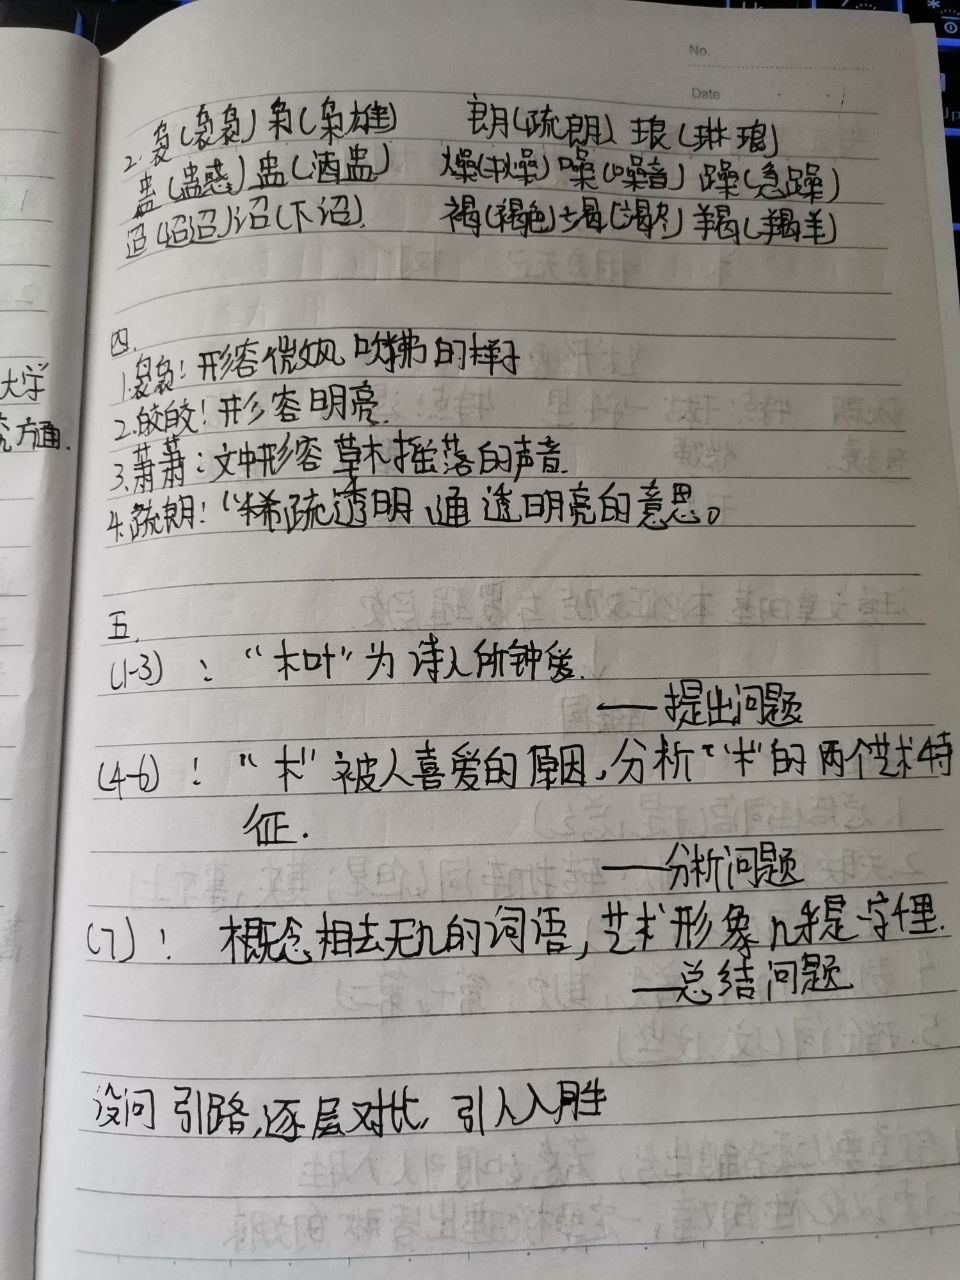 No.
Date
2. 袅(袅袅) 枭(枭雄) 朗(疏朗) 琅(琳琅)
蛊(蛊惑) 盅(酒盅) 燥(干燥) 噪(噪音) 躁(急躁)
迢(迢迢) 诏(下诏). 褐(褐色) 竭(竭尽) 羯(羯羊)
四.
1.袅袅: 形容微风吹拂的样子
2.皎皎: 形容明亮.
3.萧萧: 文中形容草木摇落的声音.
4.疏朗: 稀疏透明、通透明亮的意思。
五.
(1-3) : "木叶"为诗人所钟爱.
——提出问题
(4-6) : "木"被人喜爱的原因,分析"木"的两个艺术特
征.
——分析问题
(7) : 概念相去无几的词语,艺术形象几乎是一字千里.
——总结问题
设问引路,逐层对比,引人入胜
大学
方通.